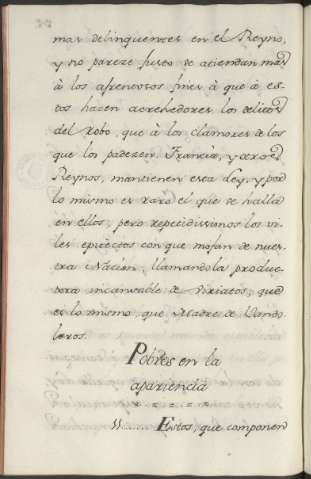 mas delinquentes en el Reyno,
y no pareze justo se atiendan mas
à los afrentosos fines à que à es-
tos hacen acrehedores los delitos
del Robo, que à los clamores de los
que los padezen. Francia, y otros
Reynos, mantienen esta Ley, y por
lo mismo es raro el que se halla
en ellos; pero repetidissimos los vi-
les epitectos con que mofan de nues-
tra Nacion, llamandola produc-
tora incansable de Viriatos, que
es lo mismo, que Madre de Vando-
leros.
Pobres en la
apariencia
11 Estos, que componen